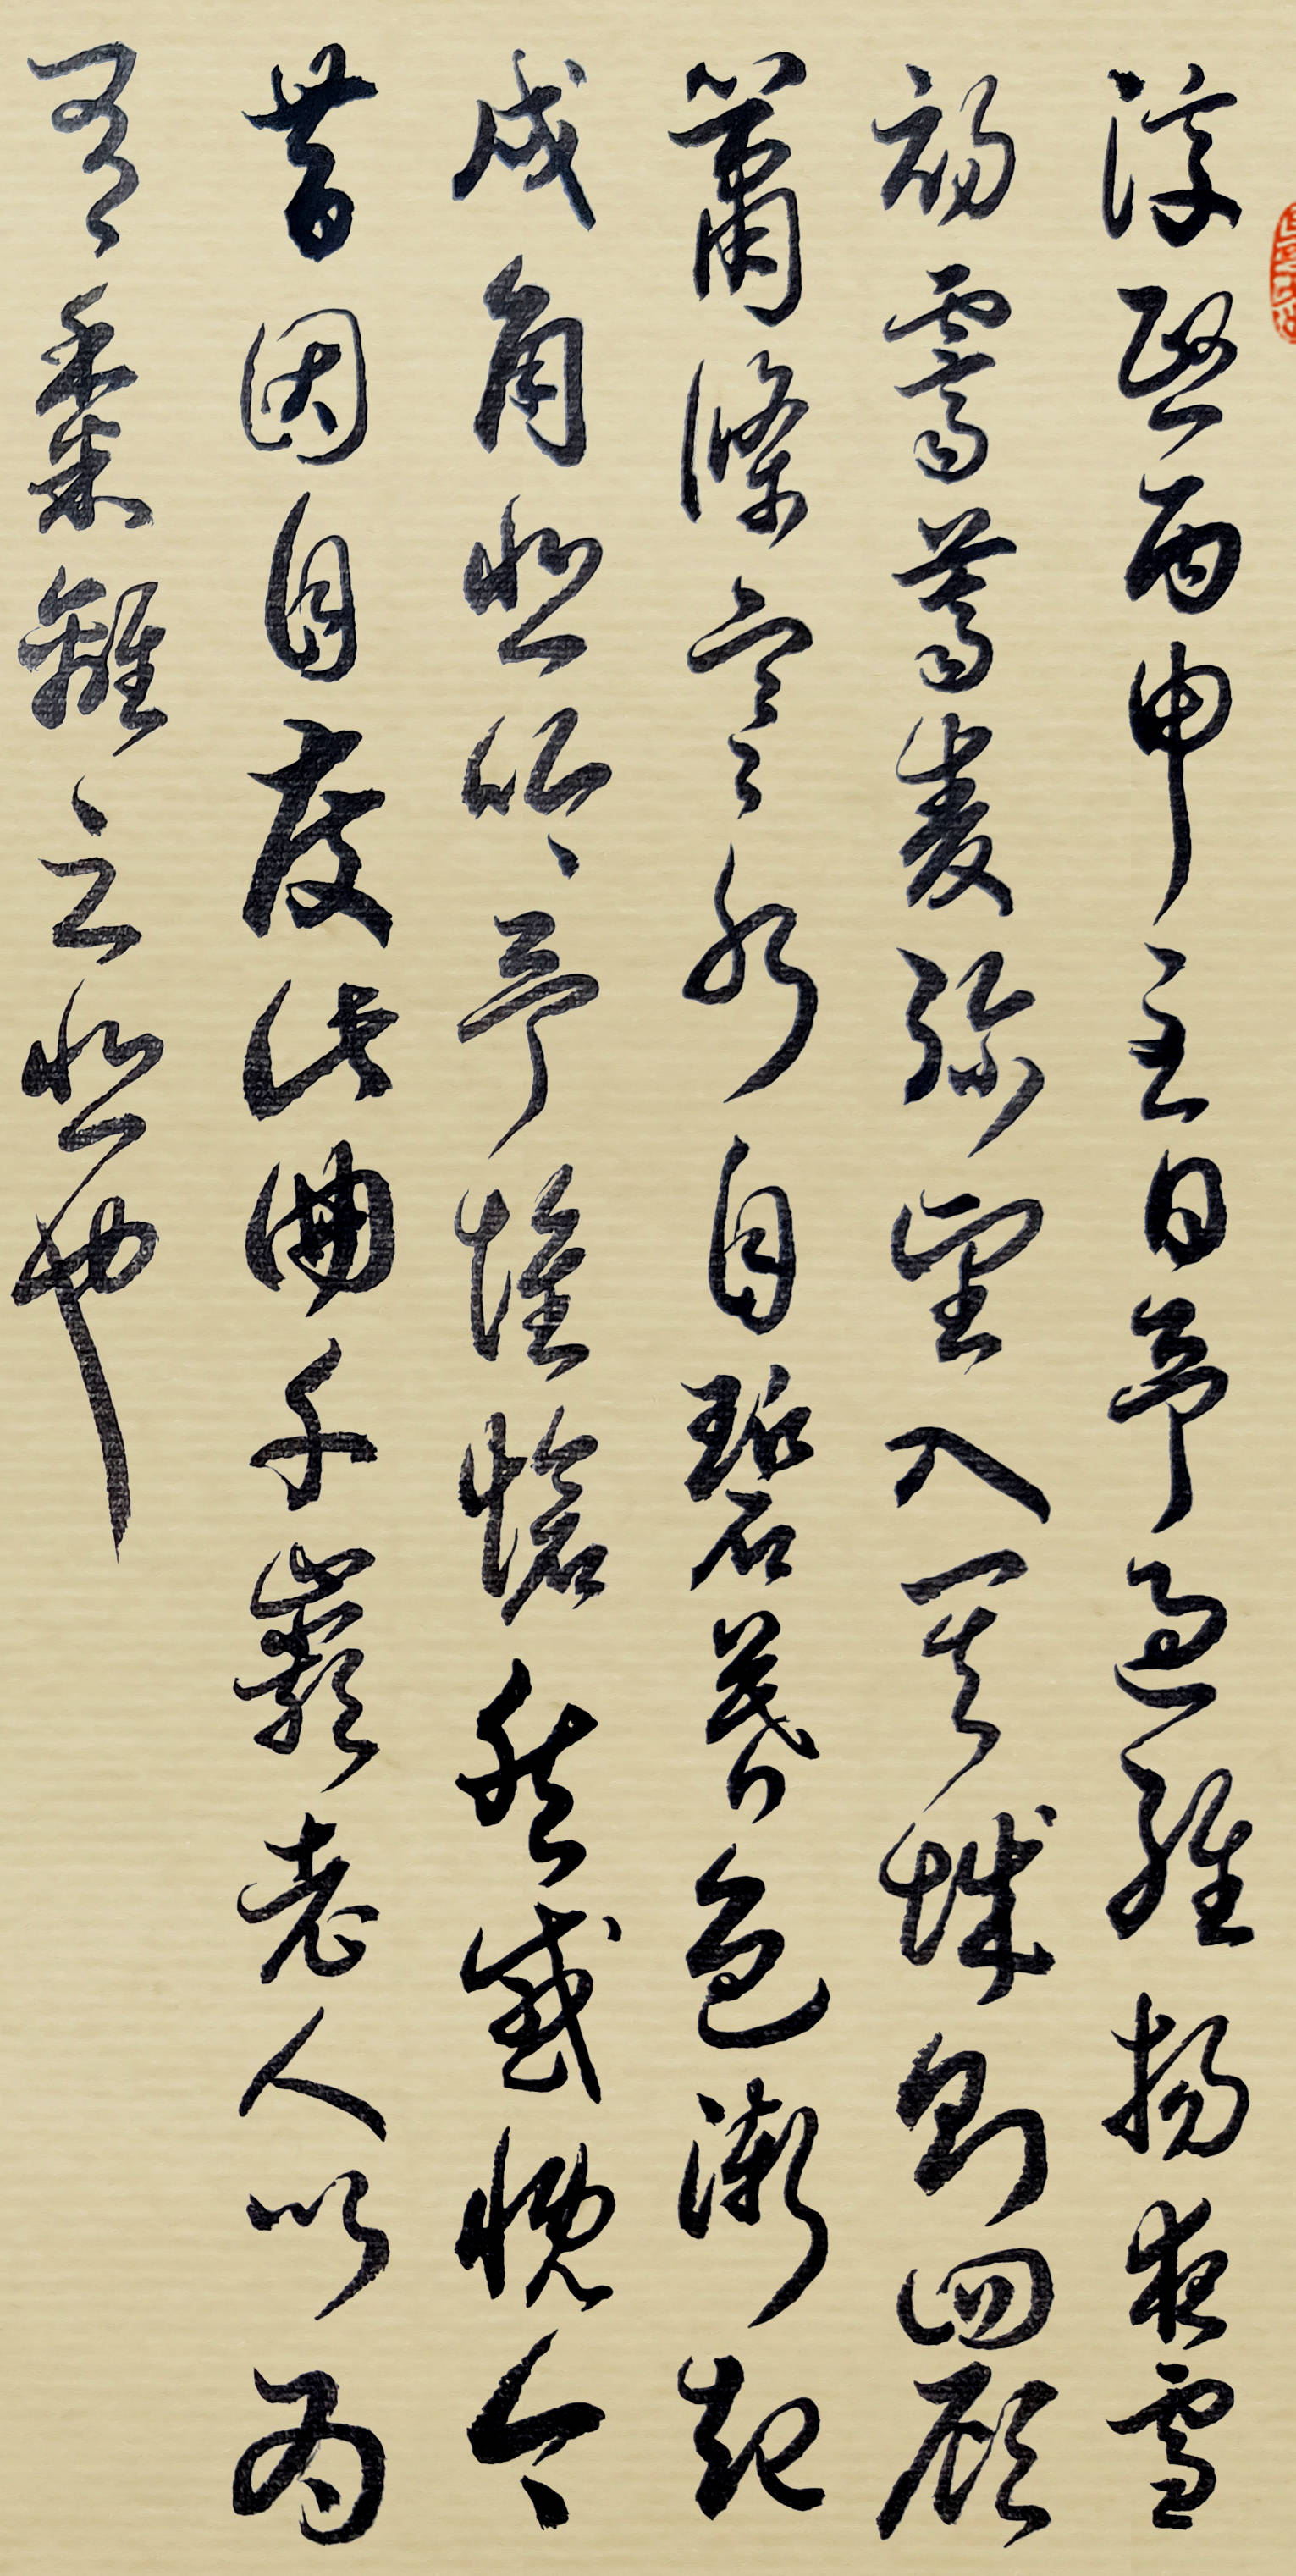 淳熙丙申至日予過維揚夜雪
初霽薺麥弥望入其城則四顧
蕭條寒水自碧暮色漸起
戍角悲吟予懷愴然感慨今
昔因自度此曲千巖老人以為
有黍離之悲也